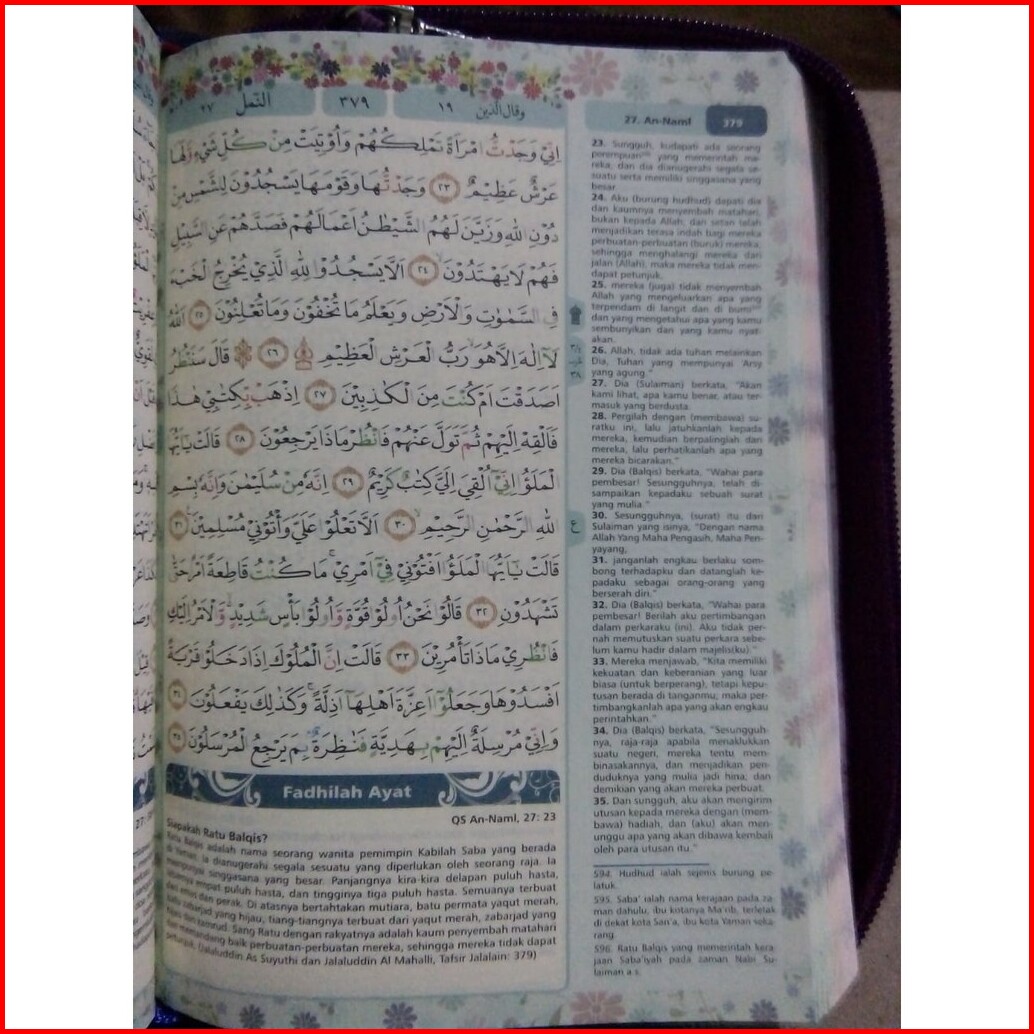 النمل ٢٧
٣٧٩
وقال الذين ١٩
اِنِّيْ وَجَدْتُّ امْرَاَةً تَمْلِكُهُمْ وَاُوْتِيَتْ مِنْ كُلِّ شَيْءٍ وَّلَهَا
عَرْشٌ عَظِيْمٌ ٢٣ وَجَدْتُّهَا وَقَوْمَهَا يَسْجُدُوْنَ لِلشَّمْسِ مِنْ
دُوْنِ اللّٰهِ وَزَيَّنَ لَهُمُ الشَّيْطٰنُ اَعْمَالَهُمْ فَصَدَّهُمْ عَنِ السَّبِيْلِ
فَهُمْ لَا يَهْتَدُوْنَ ٢٤ اَلَّا يَسْجُدُوْا لِلّٰهِ الَّذِيْ يُخْرِجُ الْخَبْءَ
فِى السَّمٰوٰتِ وَالْاَرْضِ وَيَعْلَمُ مَا تُخْفُوْنَ وَمَا تُعْلِنُوْنَ ٢٥ اَللّٰهُ
لَآ اِلٰهَ اِلَّا هُوَ رَبُّ الْعَرْشِ الْعَظِيْمِ ٢٦ قَالَ سَنَنْظُرُ
اَصَدَقْتَ اَمْ كُنْتَ مِنَ الْكٰذِبِيْنَ ٢٧ اِذْهَبْ بِّكِتٰبِيْ هٰذَا
فَاَلْقِهْ اِلَيْهِمْ ثُمَّ تَوَلَّ عَنْهُمْ فَانْظُرْ مَاذَا يَرْجِعُوْنَ ٢٨ قَالَتْ يٰٓاَيُّهَا
الْمَلَؤُا اِنِّيْٓ اُلْقِيَ اِلَيَّ كِتٰبٌ كَرِيْمٌ ٢٩ اِنَّهٗ مِنْ سُلَيْمٰنَ وَاِنَّهٗ بِسْمِ
اللّٰهِ الرَّحْمٰنِ الرَّحِيْمِ ٣٠ اَلَّا تَعْلُوْا عَلَيَّ وَأْتُوْنِيْ مُسْلِمِيْنَ ٣١
قَالَتْ يٰٓاَيُّهَا الْمَلَؤُا اَفْتُوْنِيْ فِيْٓ اَمْرِيْ مَا كُنْتُ قَاطِعَةً اَمْرًا حَتّٰى
تَشْهَدُوْنِ ٣٢ قَالُوْا نَحْنُ اُولُوْا قُوَّةٍ وَّاُولُوْا بَأْسٍ شَدِيْدٍ وَّالْاَمْرُ اِلَيْكِ
فَانْظُرِيْ مَاذَا تَأْمُرِيْنَ ٣٣ قَالَتْ اِنَّ الْمُلُوْكَ اِذَا دَخَلُوْا قَرْيَةً
اَفْسَدُوْهَا وَجَعَلُوْٓا اَعِزَّةَ اَهْلِهَآ اَذِلَّةً وَكَذٰلِكَ يَفْعَلُوْنَ ٣٤
وَاِنِّيْ مُرْسِلَةٌ اِلَيْهِمْ بِهَدِيَّةٍ فَنٰظِرَةٌ بِمَ يَرْجِعُ الْمُرْسَلُوْنَ ٣٥
Fadhilah Ayat
QS An-Naml, 27: 23
Siapakah Ratu Balqis?
Ratu Balqis adalah nama seorang wanita pemimpin Kabilah Saba yang berada
di Yaman. Ia dianugerahi segala sesuatu yang diperlukan oleh seorang raja. Ia
mempunyai singgasana yang besar. Panjangnya kira-kira delapan puluh hasta,
lebarnya empat puluh hasta, dan tingginya tiga puluh hasta. Semuanya terbuat
dari emas dan perak. Di atasnya bertahtakan mutiara, batu permata yaqut merah,
batu zabarjad yang hijau, tiang-tiangnya terbuat dari yaqut merah, zabarjad yang
hijau dan zamrud. Sang Ratu dengan rakyatnya adalah kaum penyembah matahari
dan memandang baik perbuatan-perbuatan mereka, sehingga mereka tidak dapat
petunjuk. (Jalaluddin As Suyuthi dan Jalaluddin Al Mahalli, Tafsir Jalalain: 379)
27. An-Naml
379
23. Sungguh, kudapati ada seorang
perempuan⁵⁹⁶ yang memerintah me-
reka, dan dia dianugerahi segala se-
suatu serta memiliki singgasana yang
besar.
24. Aku (burung hudhud) dapati dia
dan kaumnya menyembah matahari,
bukan kepada Allah; dan setan telah
menjadikan terasa indah bagi mereka
perbuatan-perbuatan (buruk) mereka,
sehingga menghalangi mereka dari
jalan (Allah), maka mereka tidak men-
dapat petunjuk.
25. mereka (juga) tidak menyembah
Allah yang mengeluarkan apa yang
terpendam di langit dan di bumi
dan yang mengetahui apa yang kamu
sembunyikan dan yang kamu nyat-
akan.
26. Allah, tidak ada tuhan melainkan
Dia, Tuhan yang mempunyai 'Arsy
yang agung."
27. Dia (Sulaiman) berkata, "Akan
kami lihat, apa kamu benar, atau ter-
masuk yang berdusta.
28. Pergilah dengan (membawa) su-
ratku ini, lalu jatuhkanlah kepada
mereka, kemudian berpalinglah dari
mereka, lalu perhatikanlah apa yang
mereka bicarakan."
29. Dia (Balqis) berkata, "Wahai para
pembesar! Sesungguhnya, telah di-
sampaikan kepadaku sebuah surat
yang mulia."
30. Sesungguhnya, (surat) itu dari
Sulaiman yang isinya, "Dengan nama
Allah Yang Maha Pengasih, Maha Pen-
yayang,
31. janganlah engkau berlaku som-
bong terhadapku dan datanglah ke-
padaku sebagai orang-orang yang
berserah diri."
32. Dia (Balqis) berkata, "Wahai para
pembesar! Berilah aku pertimbangan
dalam perkaraku (ini). Aku tidak per-
nah memutuskan suatu perkara sebe-
lum kamu hadir dalam majelis(ku)."
33. Mereka menjawab, "Kita memiliki
kekuatan dan keberanian yang luar
biasa (untuk berperang), tetapi kepu-
tusan berada di tanganmu, maka per-
timbangkanlah apa yang akan engkau
perintahkan."
34. Dia (Balqis) berkata, "Sesungguh-
nya, raja-raja apabila menaklukkan
suatu negeri, mereka tentu mem-
binasakannya, dan menjadikan pen-
duduknya yang mulia jadi hina; dan
demikian yang akan mereka perbuat.
35. Dan sungguh, aku akan mengirim
utusan kepada mereka dengan (mem-
bawa) hadiah, dan (aku) akan men-
unggu apa yang akan dibawa kembali
oleh para utusan itu."
594. Hudhud ialah sejenis burung pe-
latuk.
595. Saba' ialah nama kerajaan pada za-
man dahulu, ibu kotanya Ma'rib, terletak
di dekat kota San'a, ibu kota Yaman seka-
rang.
596. Ratu Balqis yang memerintah kera-
jaan Saba'iyah pada zaman Nabi Su-
laiman a.s.